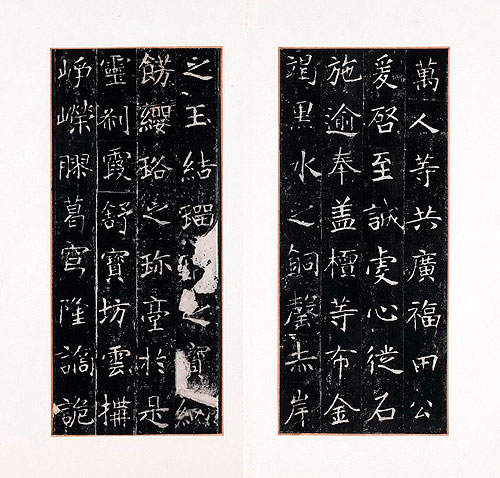 萬人等共廣福田公
爰啓至誠虔心徙石
施逾奉盖檀等布金
竭黒水之銅罄赤岸
之玉結瑠之寶網
飾纓珞之珎臺於是
靈刹霞舒寶坊雲構
崢嶸膠葛穹隆譎詭